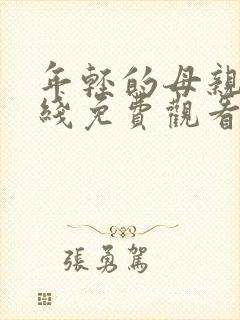 年轻的母親
綫免費觀看
張勇駕